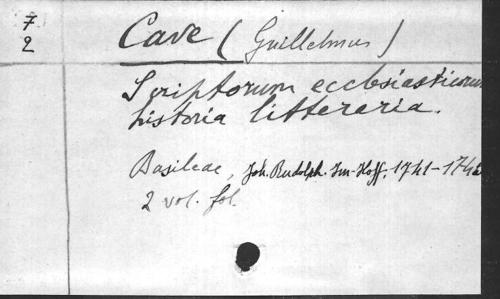 7
2
Cave (Guillelmus)
Scriptorum ecclesiasticorum
historia litteraria.
Basileae, Joh. Rudolph. Im-Hoff, 1741-174
2 vol. fol.